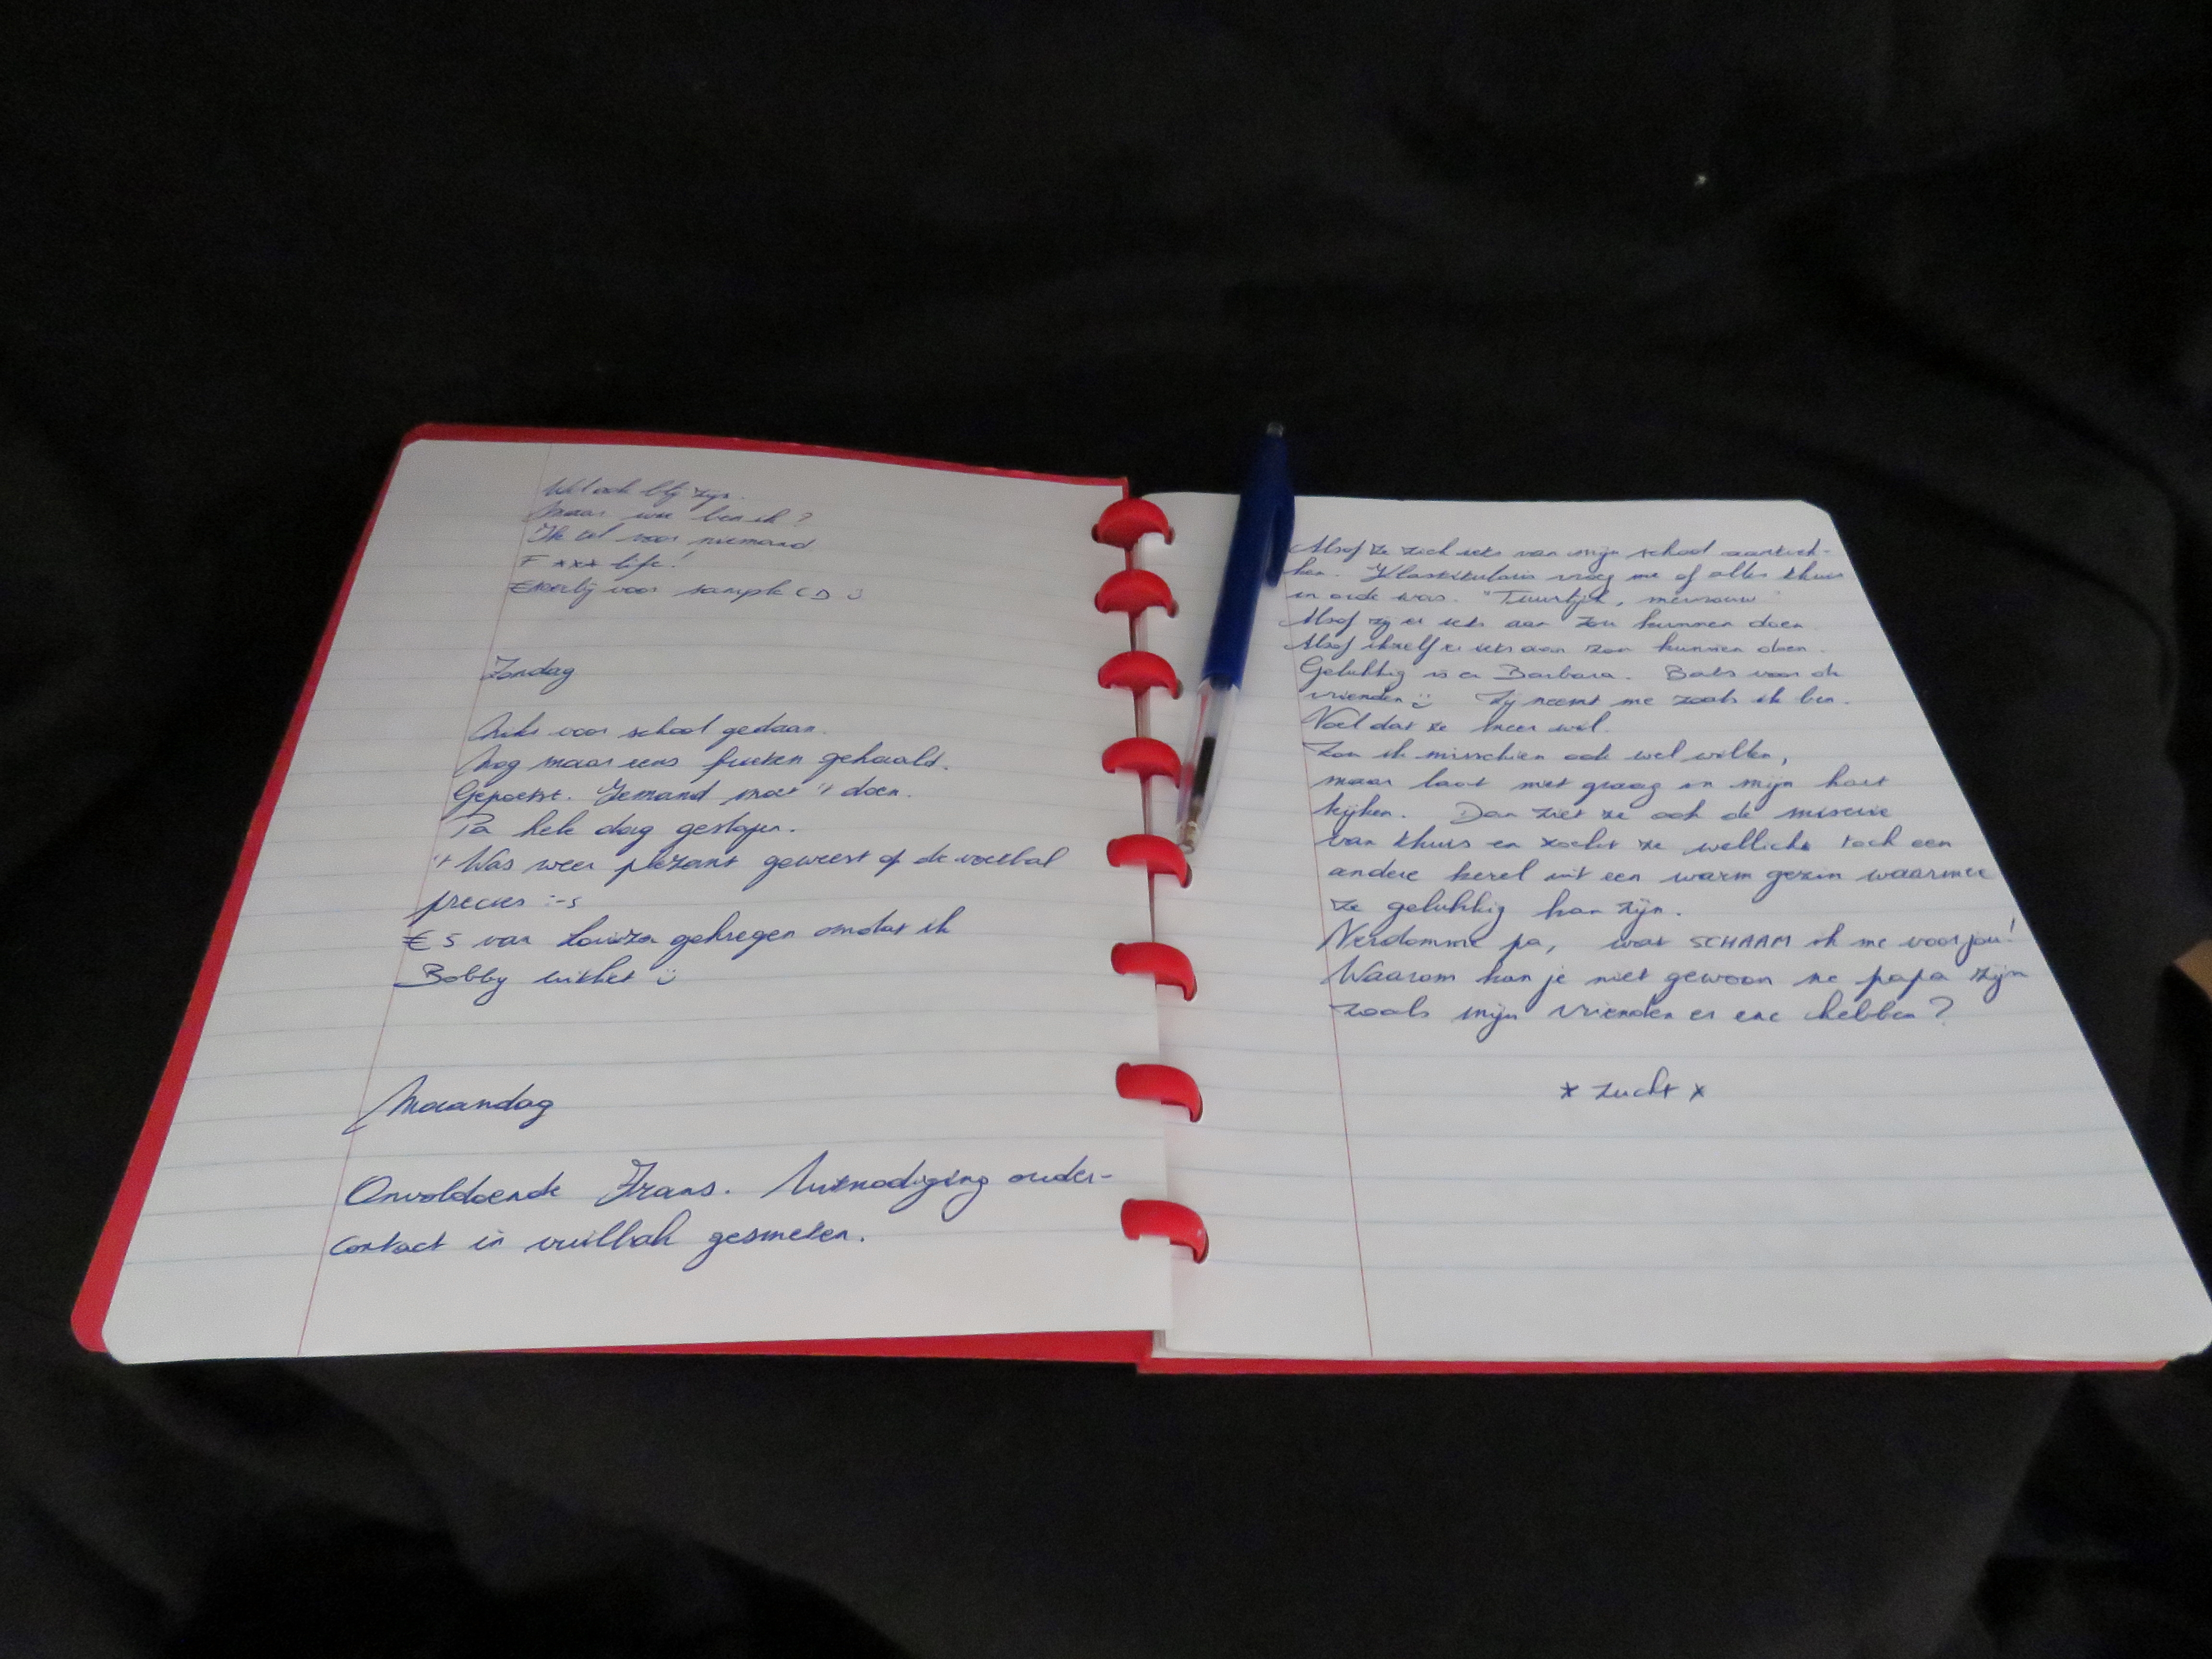 Wil ook blij zijn.
Maar wie ben ik?
Ik tel voor niemand
F *** life!
voor sample CD :)
Zondag
Niks voor school gedaan.
Nog maar eens frieten gehaald.
Gepoetst. Iemand moet 't doen.
Pa hele dag geslapen.
't Was weer plezant geweest op de voetbal
precies :-s
€5 van Louiza gekregen omdat ik
Bobby uitliet :)
Maandag
Onvoldoende Frans. Uitnodiging ouder-
contact in vuilbak gesmeten.
Alsof ze zich iets van mijn school aantrek-
ken. Klastitularis vroeg me of alles thuis
in orde was. "Tuurlijk, mevrouw"
Alsof zij er iets aan zou kunnen doen.
Alsof ikzelf er iets aan zou kunnen doen.
Gelukkig is er Barbara. Babs voor de
vrienden :) Zij neemt me zoals ik ben.
Voel dat ze meer wil.
Zou ik misschien ook wel willen,
maar laat niet graag in mijn hart
kijken. Dan ziet ze ook de miserie
van thuis en zoekt ze wellicht toch een
andere kerel uit een warm gezin waarmee
ze gelukkig kan zijn.
Verdomme pa, wat SCHAAM ik me voor jou!
Waarom kan je niet gewoon ne papa zijn
zoals mijn vrienden er ene hebben?
* zucht *